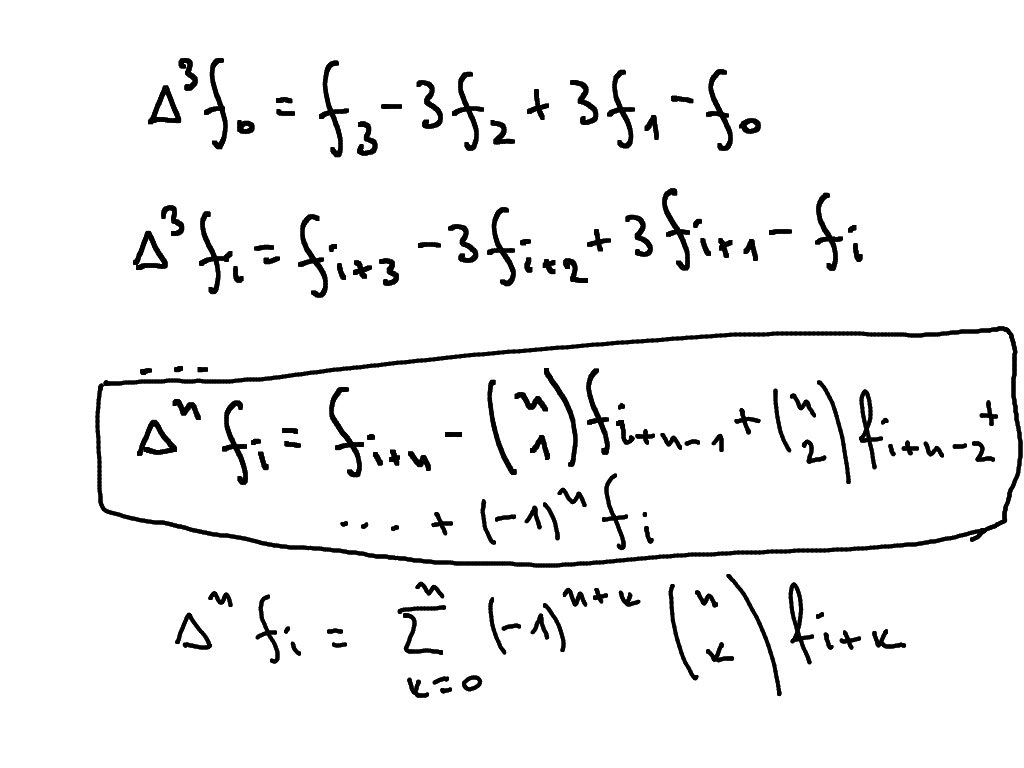 Δ³f₀ = f₃ - 3f₂ + 3f₁ - f₀
Δ³fᵢ = fᵢ₊₃ - 3fᵢ₊₂ + 3fᵢ₊₁ - fᵢ
...
Δⁿ fᵢ = f_{i+n} - (n 1) f_{i+n-1} + (n 2) f_{i+n-2} +
... + (-1)ⁿ fᵢ
Δⁿ fᵢ = Σ_{k=0}^{n} (-1)^{n+k} (n k) f_{i+k}